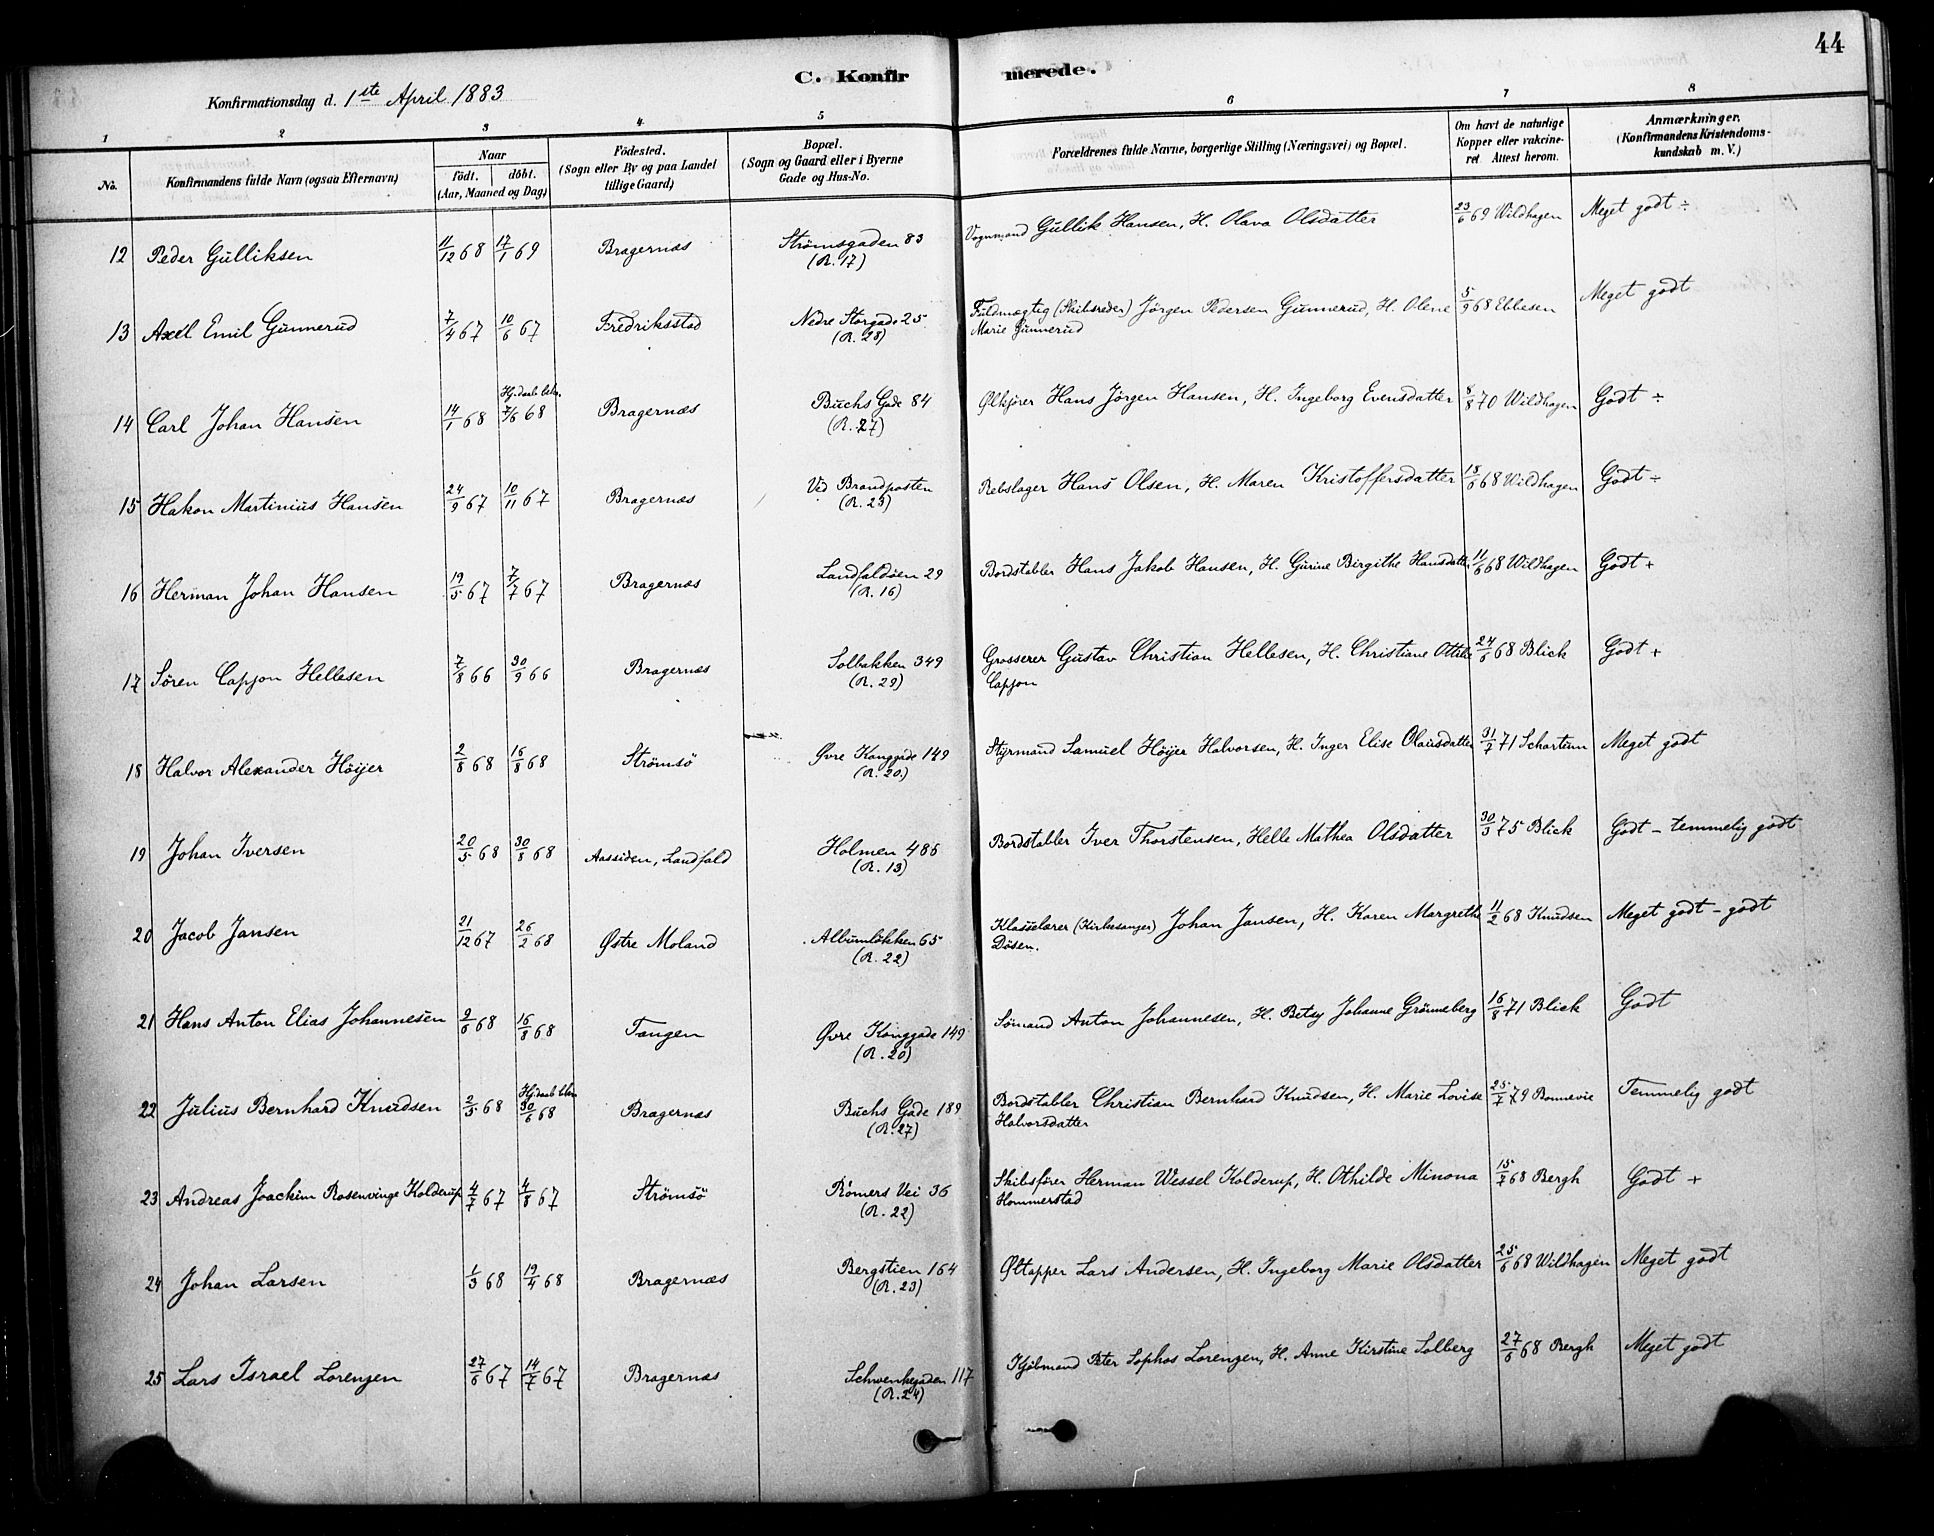 44
C. Konfirmerede.
Konfirmationsdag d. 1ste April 1883
1 2 3 4 5 6 7 8
No. Konfirmandens fulde Navn (ogsaa Efternavn) Naar födt. döbt. (Aar, Maaned og Dag) Födested. (Sogn eller By og paa Landet tillige Gaard) Bopæl. (Sogn og Gaard eller i Byerne Gade og Hus-No. Forældrenes fulde Navne, borgerlige Stilling (Næringsvei) og Bopæl. Om havt de naturlige Kopper eller vakcineret. Attest herom. Anmærkninger. (Konfirmandens Kristendomskundskab m. V.)
12 Peder Gulliksen 11/12 68 17/1 69 Bragernæs Strömsgaden 83 (R. 17) Vognmand Gullik Hansen, H. Olava Olsdatter 23/6 69 Wildhagen Meget godt ÷
13 Axel Emil Gunnerud 7/4 67 10/6 67 Fredriksstad Nedre Storgade 25 (R. 28) Fuldmægtig (Skibsreder) Jörgen Pedersen Gunnerud, H. Olene Marie Gunnerud 5/9 68 Ebbesen Meget godt
14 Carl Johan Hansen 14/1 68 Hj.daab 7/6 68 Bragernæs Buchs Gade 84 (R. 27) Ølkjører Hans Jörgen Hansen, H. Ingeborg Evensdatter 8/8 70 Wildhagen Godt ÷
15 Hakon Martinius Hansen 24/9 67 10/11 67 Bragernæs Ved Brandposten (R. 23) Rebslager Hans Olsen, H. Maren Kristoffersdatter 18/6 68 Wildhagen Godt ÷
16 Herman Johan Hansen 19/5 67 7/7 67 Bragernæs Landfaldöen 29 (R. 16) Bordstabler Hans Jakob Hansen, H. Gurine Birgithe Hansdatter 11/6 68 Wildhagen Godt +
17 Sören Capjon Hellesen 7/8 66 30/9 66 Bragernæs Solbakken 349 (R. 29) Grosserer Gustav Christian Hellesen, H. Christiane Ottilie Capjon 24/6 68 Blick Godt +
18 Halvor Alexander Höijer 2/8 68 16/8 68 Strömsö Øvre Konggade 149 (R. 20) Styrmand Samuel Höijer Halvorsen, H. Inger Elise Olausdatter 31/7 71 Schartum Meget godt
19 Johan Iversen 20/5 68 30/8 68 Aassiden, Landfald Holmen 486 (R. 13) Bordstabler Iver Thorstensen, Helle Mathea Olsdatter 30/3 75 Blick Godt - temmelig godt
20 Jacob Jansen 21/12 67 26/2 68 Østre Moland Albumløkken 65 (R. 22) Klasselærer (Kirkesanger) Johan Jansen, H. Karen Margrethe Dösen. 11/2 68 Knudsen Meget godt - godt
21 Hans Anton Elias Johannesen 2/6 68 16/8 68 Tangen Øvre Konggade 149 (R. 20) Sömand Anton Johannesen, H. Betsy Johanne Grönneberg 16/8 71 Blick Godt
22 Julius Bernhard Knudsen 2/5 68 Hj.daab 30/6 68 Bragernæs Buchs Gade 189 (R. 27) Bordstabler Christian Bernhard Knudsen, H. Marie Lovise Halvorsdatter 25/7 79 Bonnevie Temmelig godt
23 Andreas Joachim Rosenvinge Kolderup 4/7 67 4/8 67 Strömsö Römers Vei 36 (R. 22) Skibsfører Herman Wessel Kolderup, H. Othilde Minona Hommerstad 15/7 68 Bergh Godt +
24 Johan Larsen 1/3 68 19/4 68 Bragernæs Bergstien 164 (R. 23) Øltapper Lars Andersen, H. Ingeborg Marie Olsdatter 25/6 68 Wildhagen Meget godt
25 Lars Israel Lorenzen 27/6 67 14/7 67 Bragernæs Schwenkegaden 117 (R. 24) Kjöbmand Peter Sophus Lorenzen, H. Anne Kirstine Solberg 27/6 68 Bergh Meget godt